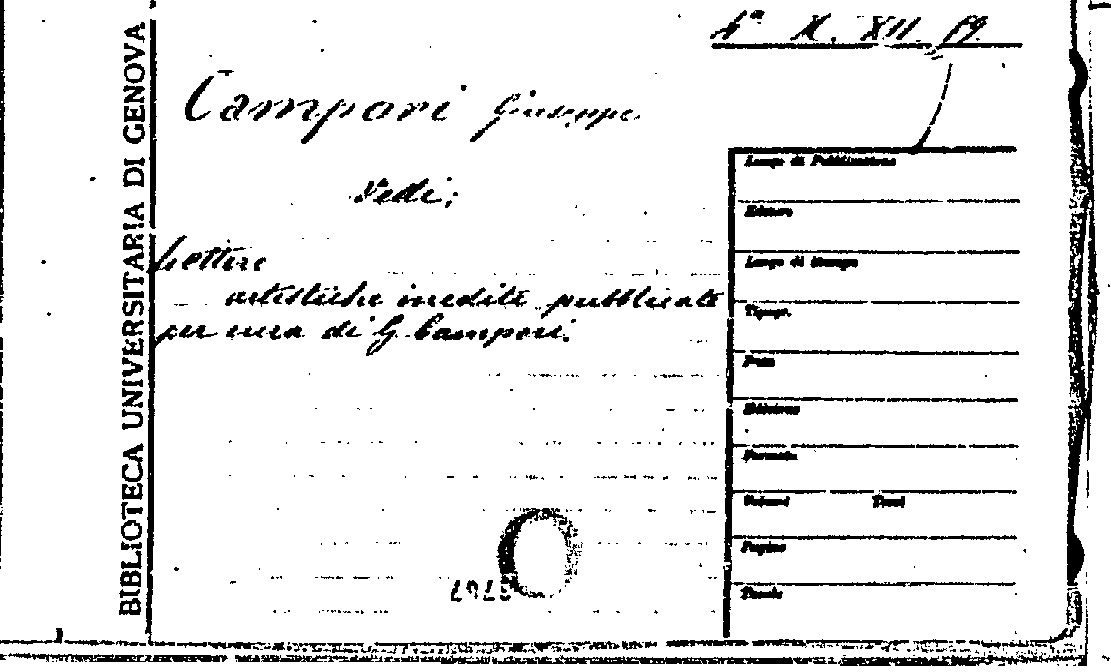 BIBLIOTECA UNIVERSITARIA DI GENOVA
4ª X. XII. 19
Campori Giuseppe
Vedi:
Lettere
artistiche inedite pubblicate
per cura di G Campori.
Luogo di Pubblicazione
Editore
Luogo di Stampa
Tipogr.
Data
Edizione
Formato
Volumi Tomi
Pagine
Tavole